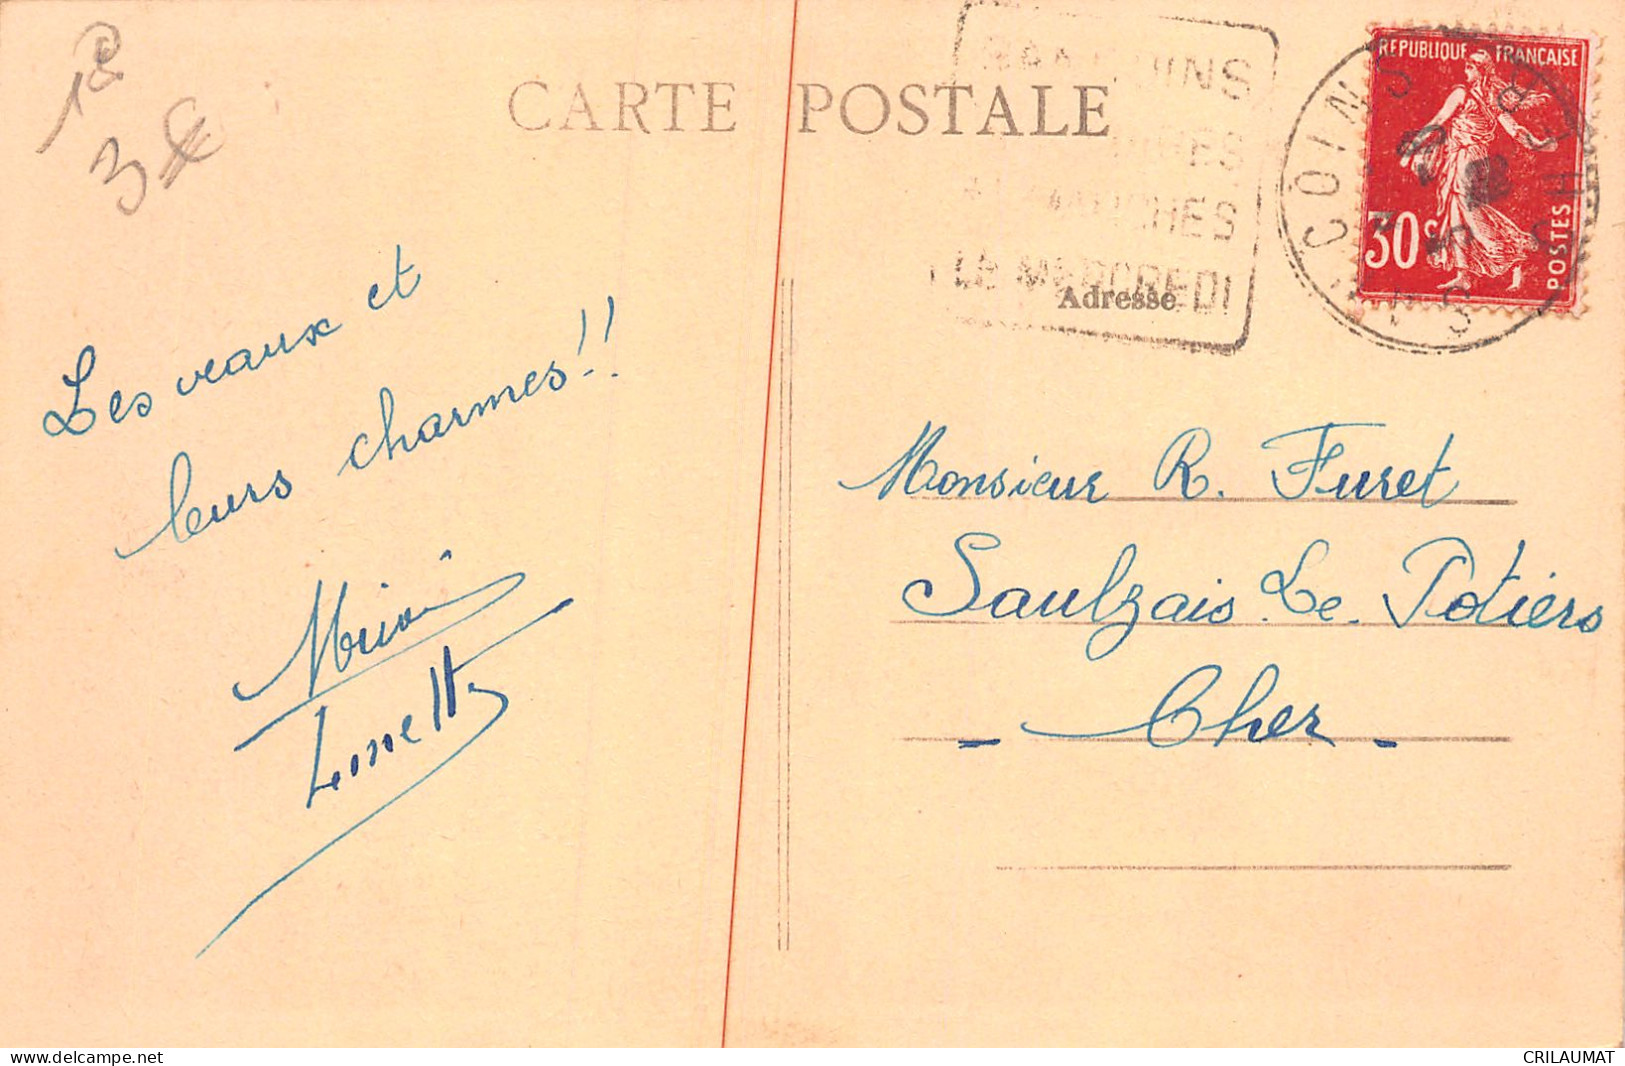 CARTE POSTALE
3€
COINS
CHER
REPUBLIQUE FRANÇAISE
30c
POSTES
LE MERCREDI
Adresse
Les veaux et
leurs charmes!!
Linette
Monsieur R. Furet
Saulzais. Le. Potiers
- Cher -
www.delcampe.net
CRILAUMAT